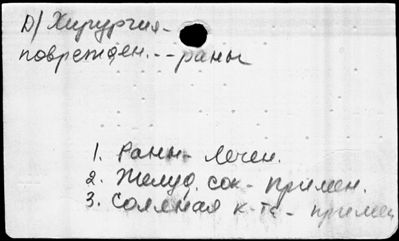 Д/ Хирургия-
поврежден. -- раны
1. Раны - лечен.
2. Желуд. сок - примен.
3. Соляная к-та - примен